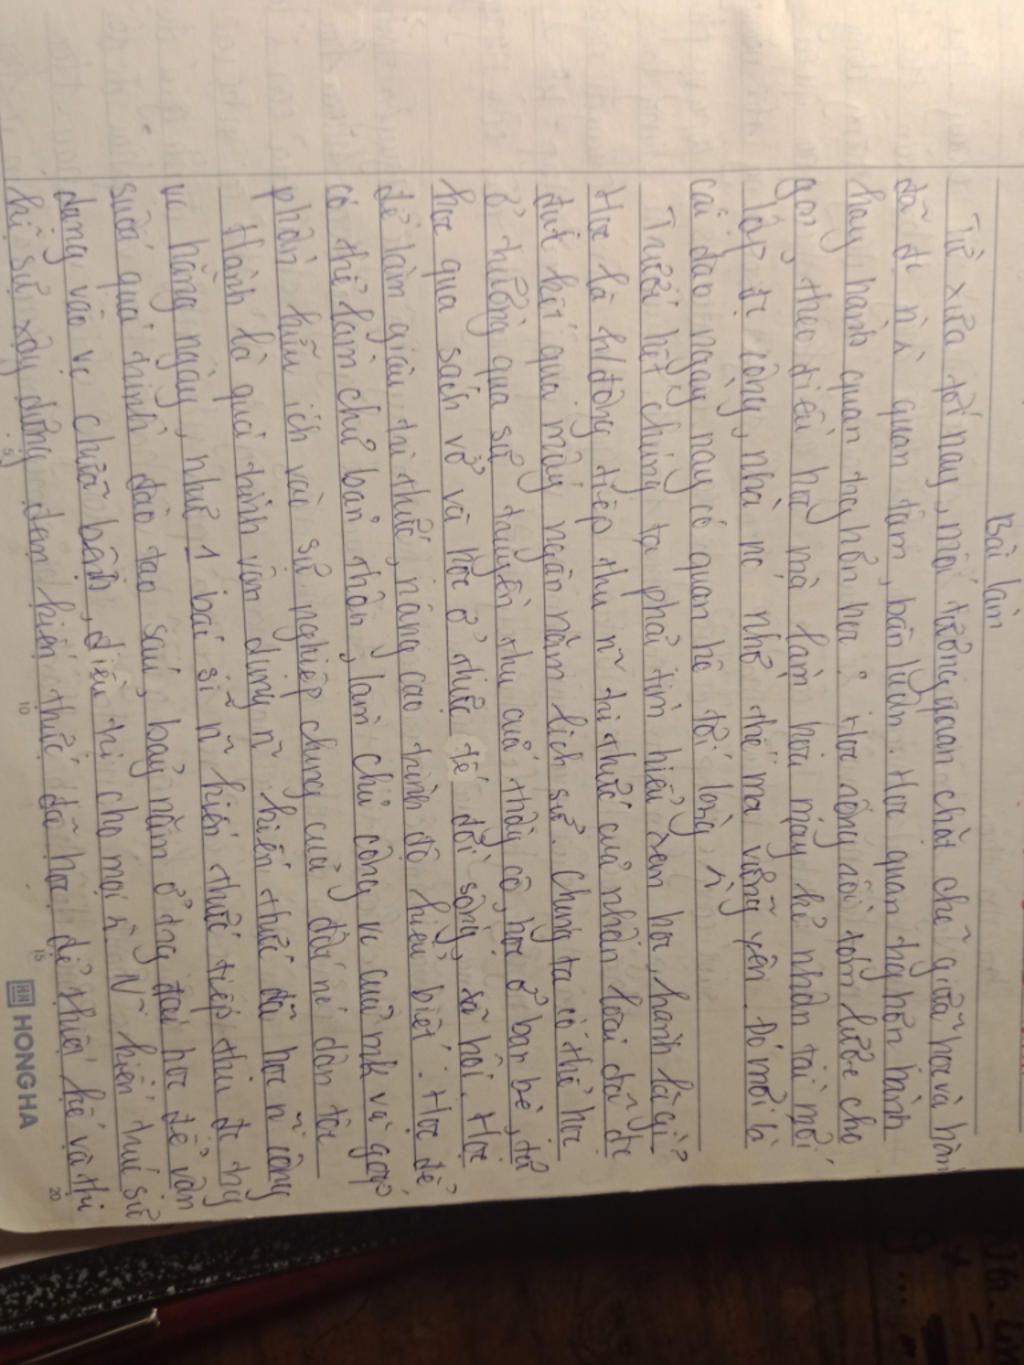 Bài làm
Từ xưa tới nay, mối tương quan chặt chẽ giữa học và hành
đã đc n` quan tâm, bàn luận. Học quan trg hơn hành
hay hành quan trg hơn học? Học rộng rồi tóm lược cho
gọn, theo điều học mà làm họa may kẻ nhân tài mới
lập đc công, nhà nc nhờ thế mà vững yên. Đó mới là
cái đạo ngày nay có quan hệ tới lòng n`
Trước hết chúng ta phải tìm hiểu xem học, hành là gì?
Học là h/động tiếp thu n~ tri thức của nhân loại đã đc
đúc kết qua mấy ngàn năm lịch sử. Chúng ta có thể học
ở trường qua sự truyền thụ của thầy cô, học ở bạn bè, tự
học qua sách vở và học ở thực tế đời sống, xã hội. Học
để làm giàu tri thức, nâng cao trình độ hiểu biết. Học để
có thể làm chủ bản thân, làm chủ công vc của mk và góp
phần hữu ích vào sự nghiệp chung của đất nc dân tộc
Hành là quá trình vận dụng n~ kiến thức đã học n~ công
vc hằng ngày, như 1 bác sĩ n~ kiến thức tiếp thu đc trg
suốt quá trình đào tạo sáu, bảy năm ở trg đại học để vận
dụng vào vc chữa bệnh, điều trị cho mọi n`. N~ kiến trúc sư
kĩ sư xây dựng đem kiến thức đã học để thiết kế và thi
5
10
15
20
HH HONG HA